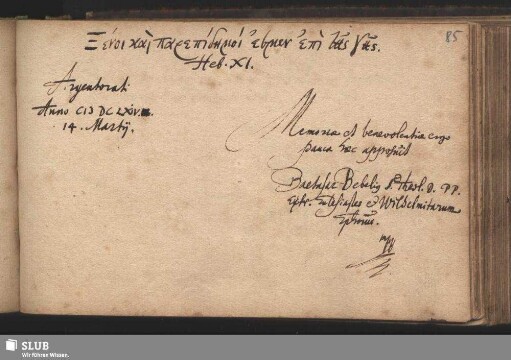 85
Ξένοι καὶ παρεπίδημοί ἐσμεν ἐπὶ τῆς γῆς.
Heb. XI.
Argentorati
Anno CIↃ DC LXIV.
14. Martij.
Memoriæ et benevolentiæ ergo
pauca hæc apposuit
Baltasar Bebelius Theol. D. PP.
Ecclesiastes et Wilhelmitarum
Ephorus.
SLUB
Wir führen Wissen.